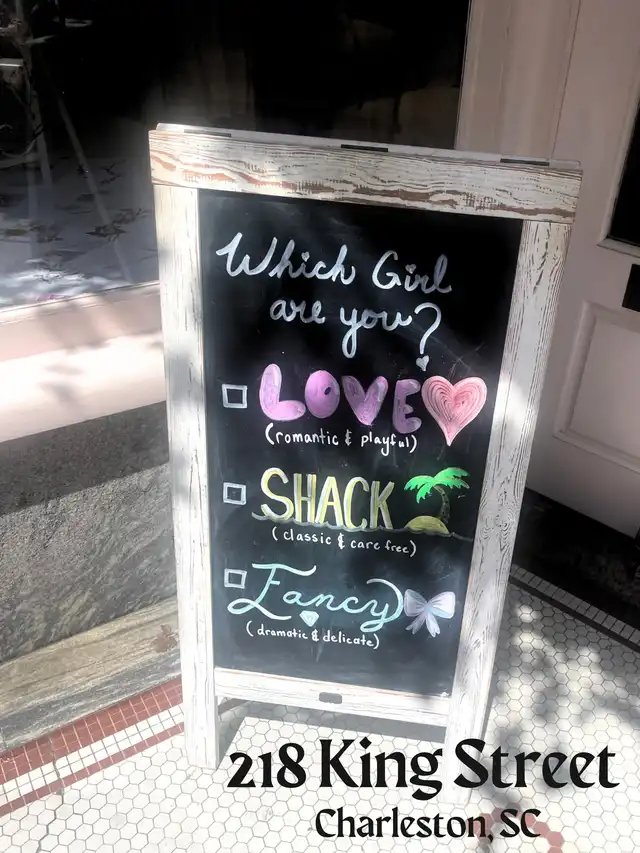 Which Girl
are you?
LOVE
(romantic & playful)
SHACK
(classic & care free)
Fancy
(dramatic & delicate)
218 King Street
Charleston, SC